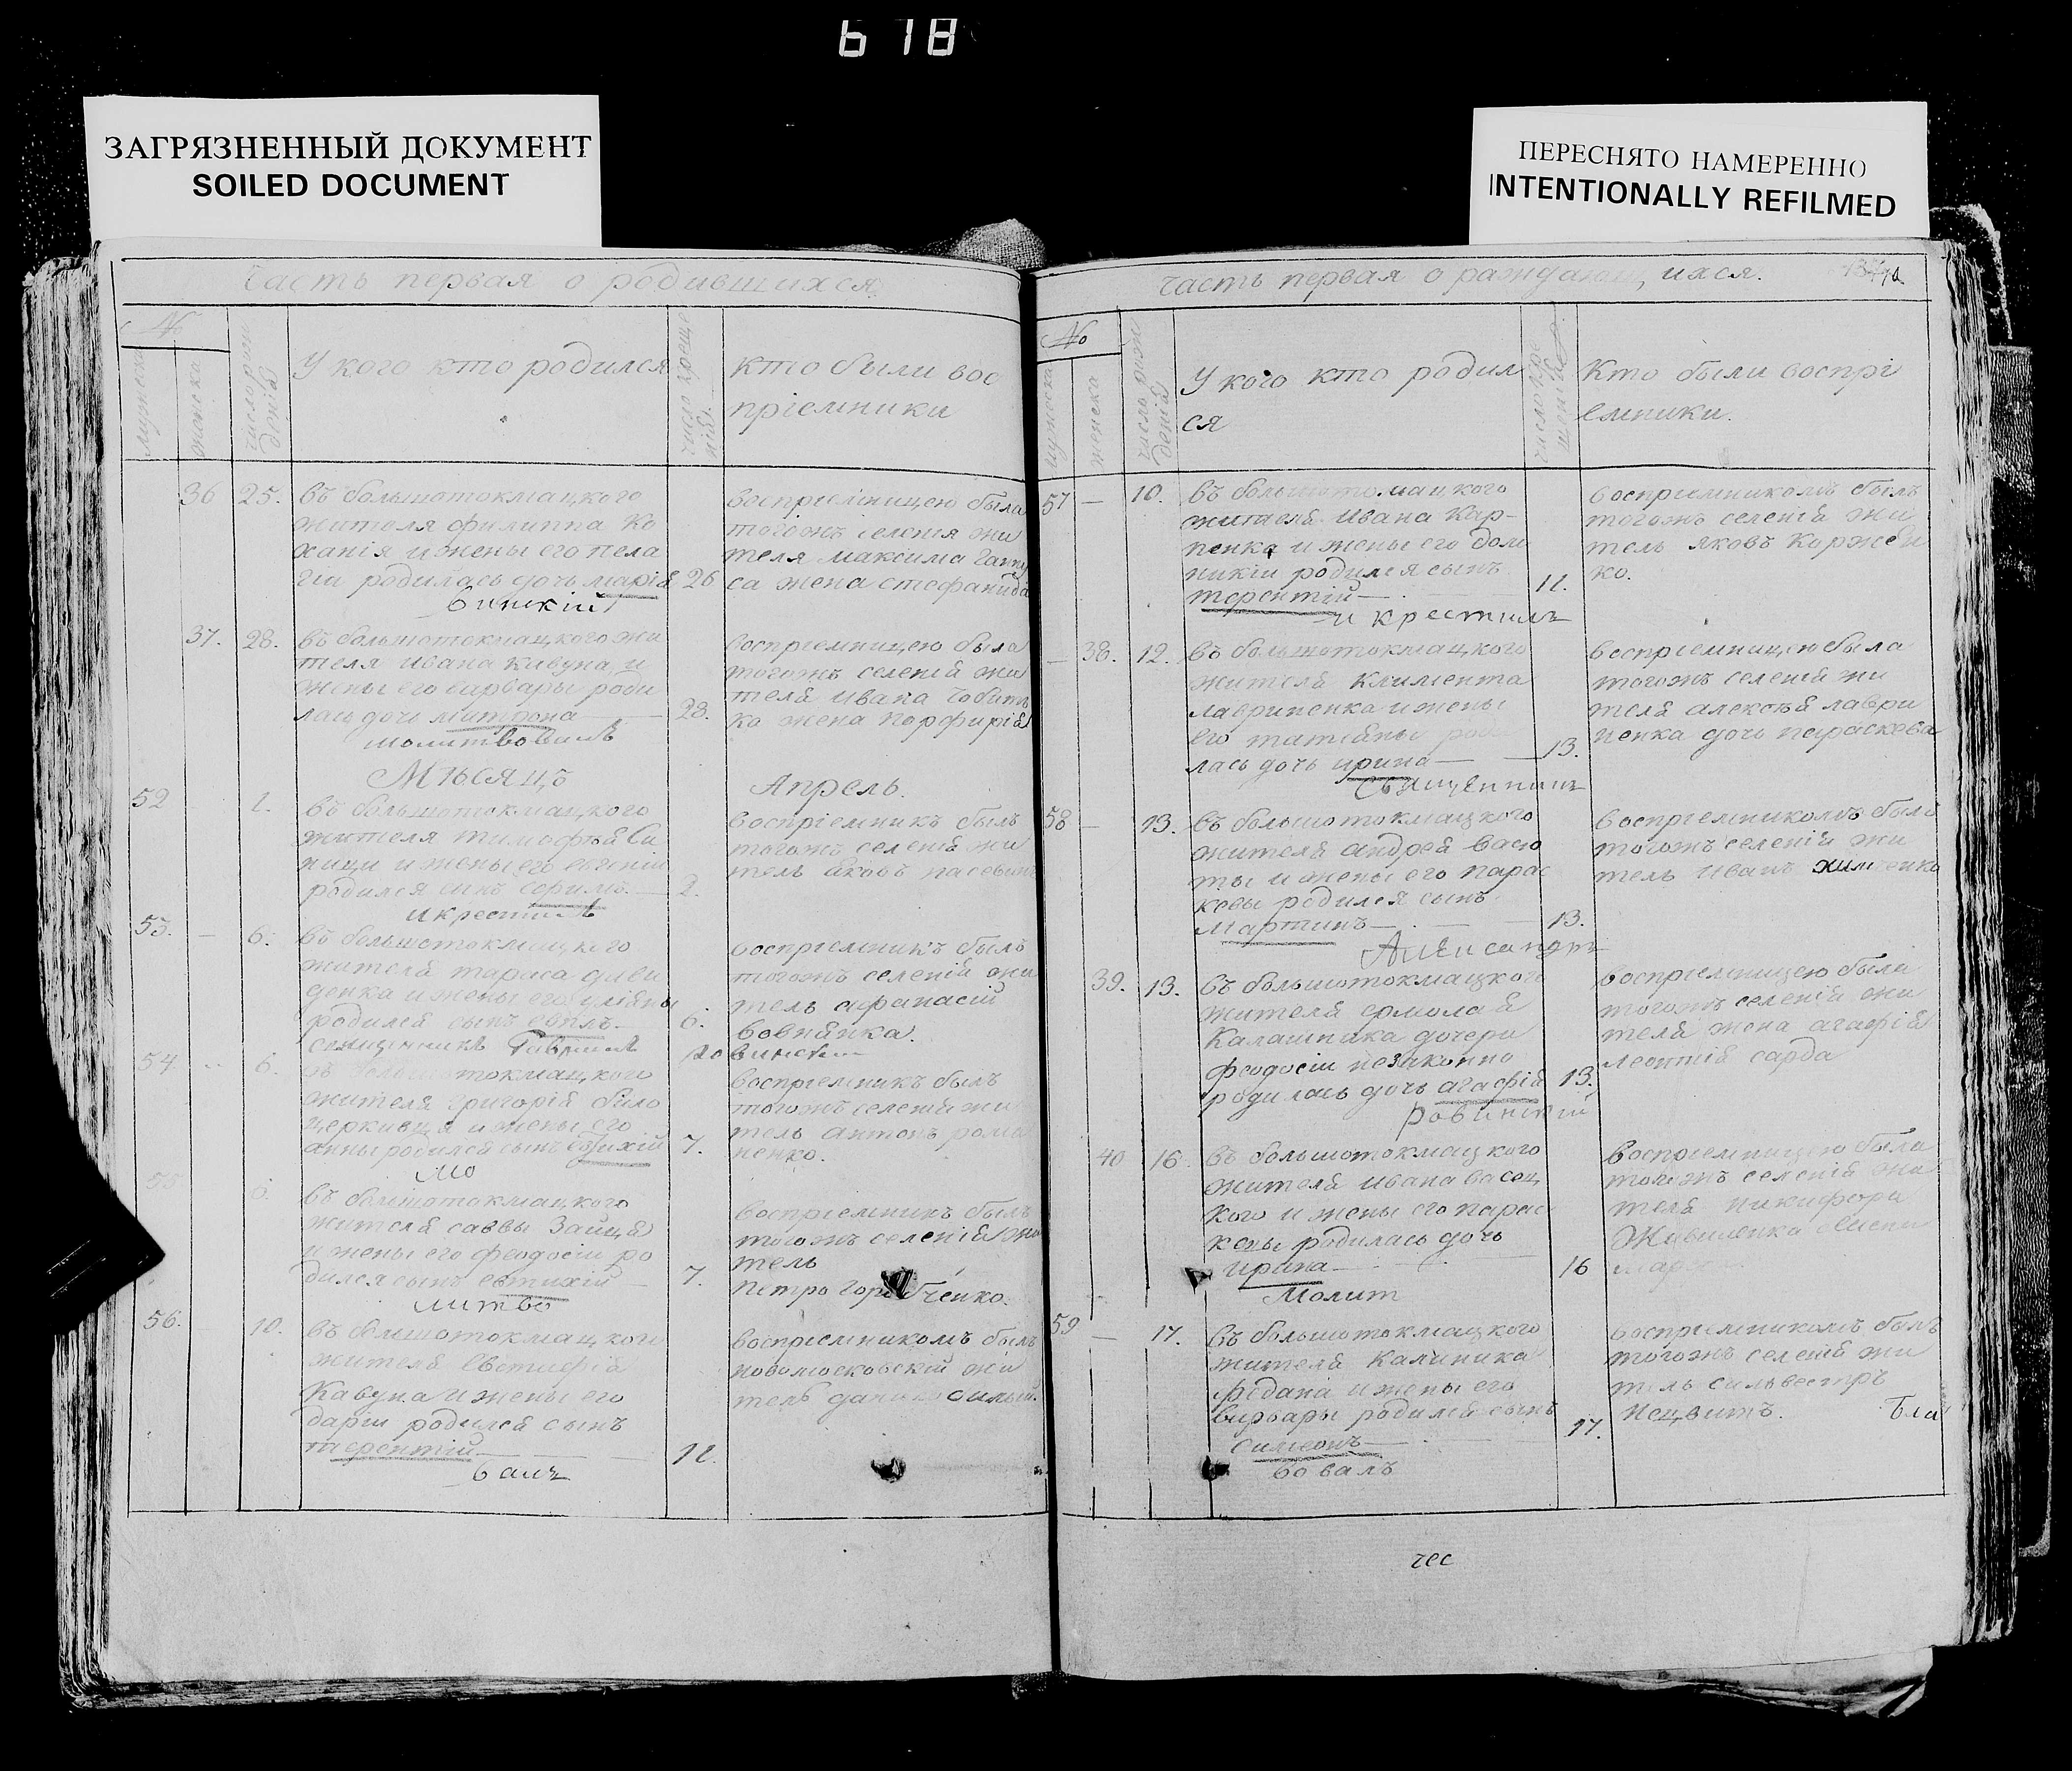 618
ЗАГРЯЗНЕННЫЙ ДОКУМЕНТ
SOILED DOCUMENT
ПЕРЕСНЯТО НАМЕРЕННО
INTENTIONALLY REFILMED
часть первая о родившихся
№
мужеска
женска
число рож
денія
У кого кто родился
число креще
нія
кто были вос
пріемники
36 25. въ большотокмацкого
жителя филиппа ко
ханія и жены его пела
гіи родилась дочь марія 26
воспріемницею была
тогожъ селенія жи
теля максима
са жена стефанида
37. 28. въ большотокмацкого жи
теля ивана кавуна и
жены его варвары роди
лась дочь митрона 28.
молитвовалъ
воспріемницею была
тогожъ селенія жи
теля ивана
ко жена порфирія
Мѣсяцъ Апрель.
52 1. въ большотокмацкого
жителя тимофѣя си
ници и жены его евгеніи
родился сынъ 2.
и крестилъ
воспріемникъ былъ
тогожъ селенія жи
тель яковъ
53. — 6. въ большотокмацкого
жителя тараса диви
денка и жены его уліяны
родился сынъ евплъ 6.
священникъ Гавриилъ
воспріемникъ былъ
тогожъ селенія жи
тель афанасій
вовняйка.
54 6. токмацкого
жителя григорія било
церкивця и жены его
анны родился сынъ евтихій 7.
мо
воспріемникъ былъ
тогожъ селенія жи
тель антонъ рома
ненко.
55 6. въ большотокмацкого
жителя саввы Зайця
и жены его феодосіи ро
дился сынъ евтихій 7.
литво
воспріемникъ былъ
тогожъ селенія жи
тель
петро
56. 10. въ большотокмацкого
жителя евстафія
Кавуна и жены его
даріи родился сынъ
терентій 11.
валъ
воспріемникомъ былъ
новомосковскій жи
тель
часть первая о раждающихся.
№
мужеска
женска
число рож
денія
У кого кто родил
ся
число кре
щенія
Кто были воспрі
емники.
57 — 10. въ большотокмацкого
жителя ивана Кар-
пенка и жены его дом
никіи родился сынъ
терентій 11.
и крестилъ
воспріемникомъ былъ
тогожъ селенія жи
тель яковъ Коржен
ко.
— 38. 12. въ большотокмацкого
жителя климента
лавриненка и жены
его татіаны роди
лась дочь ирина 13.
священникъ
воспріемницею была
тогожъ селенія жи
теля алексѣя лаври
ненка дочь параскева
58 — 13. въ большотокмацкого
жителя андрея васю
ты и жены его парас
кевы родился сынъ
мартинъ 13.
Александръ
воспріемникомъ былъ
тогожъ селенія жи
тель иванъ
39. 13. въ большотокмацкого
жителя ермолая
Калашника дочери
феодосіи незаконно
родилась дочь агафія 13.
Ровинскій
воспріемницею была
тогожъ селенія жи
теля жена агафія
леонтія сарда
40 16. въ большотокмацкого
жителя ивана васец
кого и жены его парас
кевы родилась дочь
ирина 16
молит
воспріемницею была
тогожъ селенія жи
теля никифора
59 — 17. въ большотокмацкого
жителя Калиника
и жены его
варвары родился сынъ
симеонъ 17.
вовалъ
воспріемникомъ былъ
тогожъ селенія жи
тель сильвестръ
нецвитъ.
бла
чес